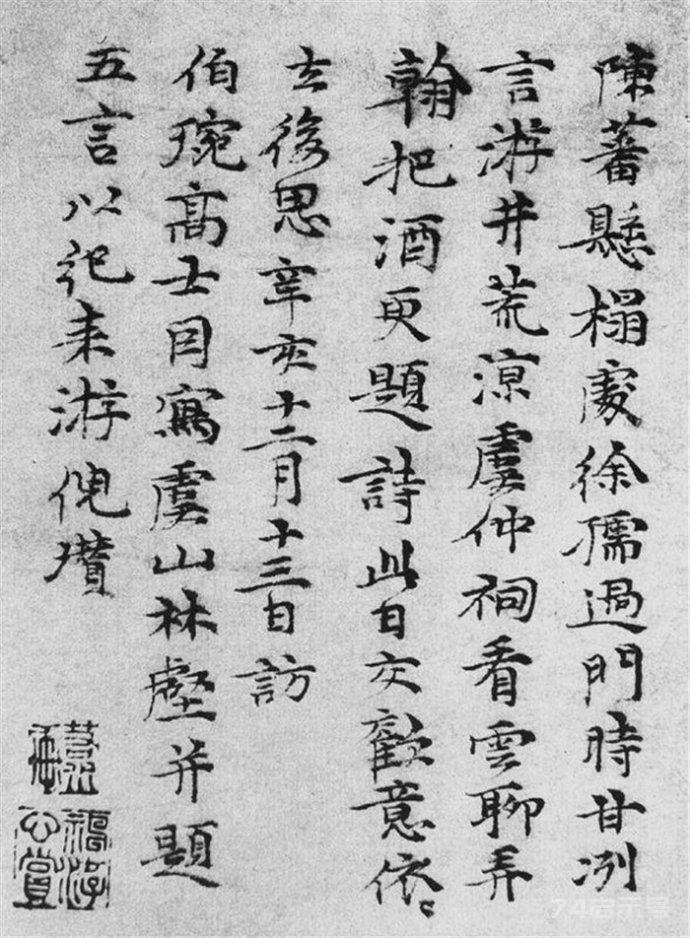 陳蕃懸榻處徐孺過門時甘冽
言游井荒涼虞仲祠看雲聊弄
翰把酒更題詩此日交歡意依〻
去後思辛亥十二月十三日訪
伯琬高士因寫虞山林壑并題
五言以記来游倪瓚